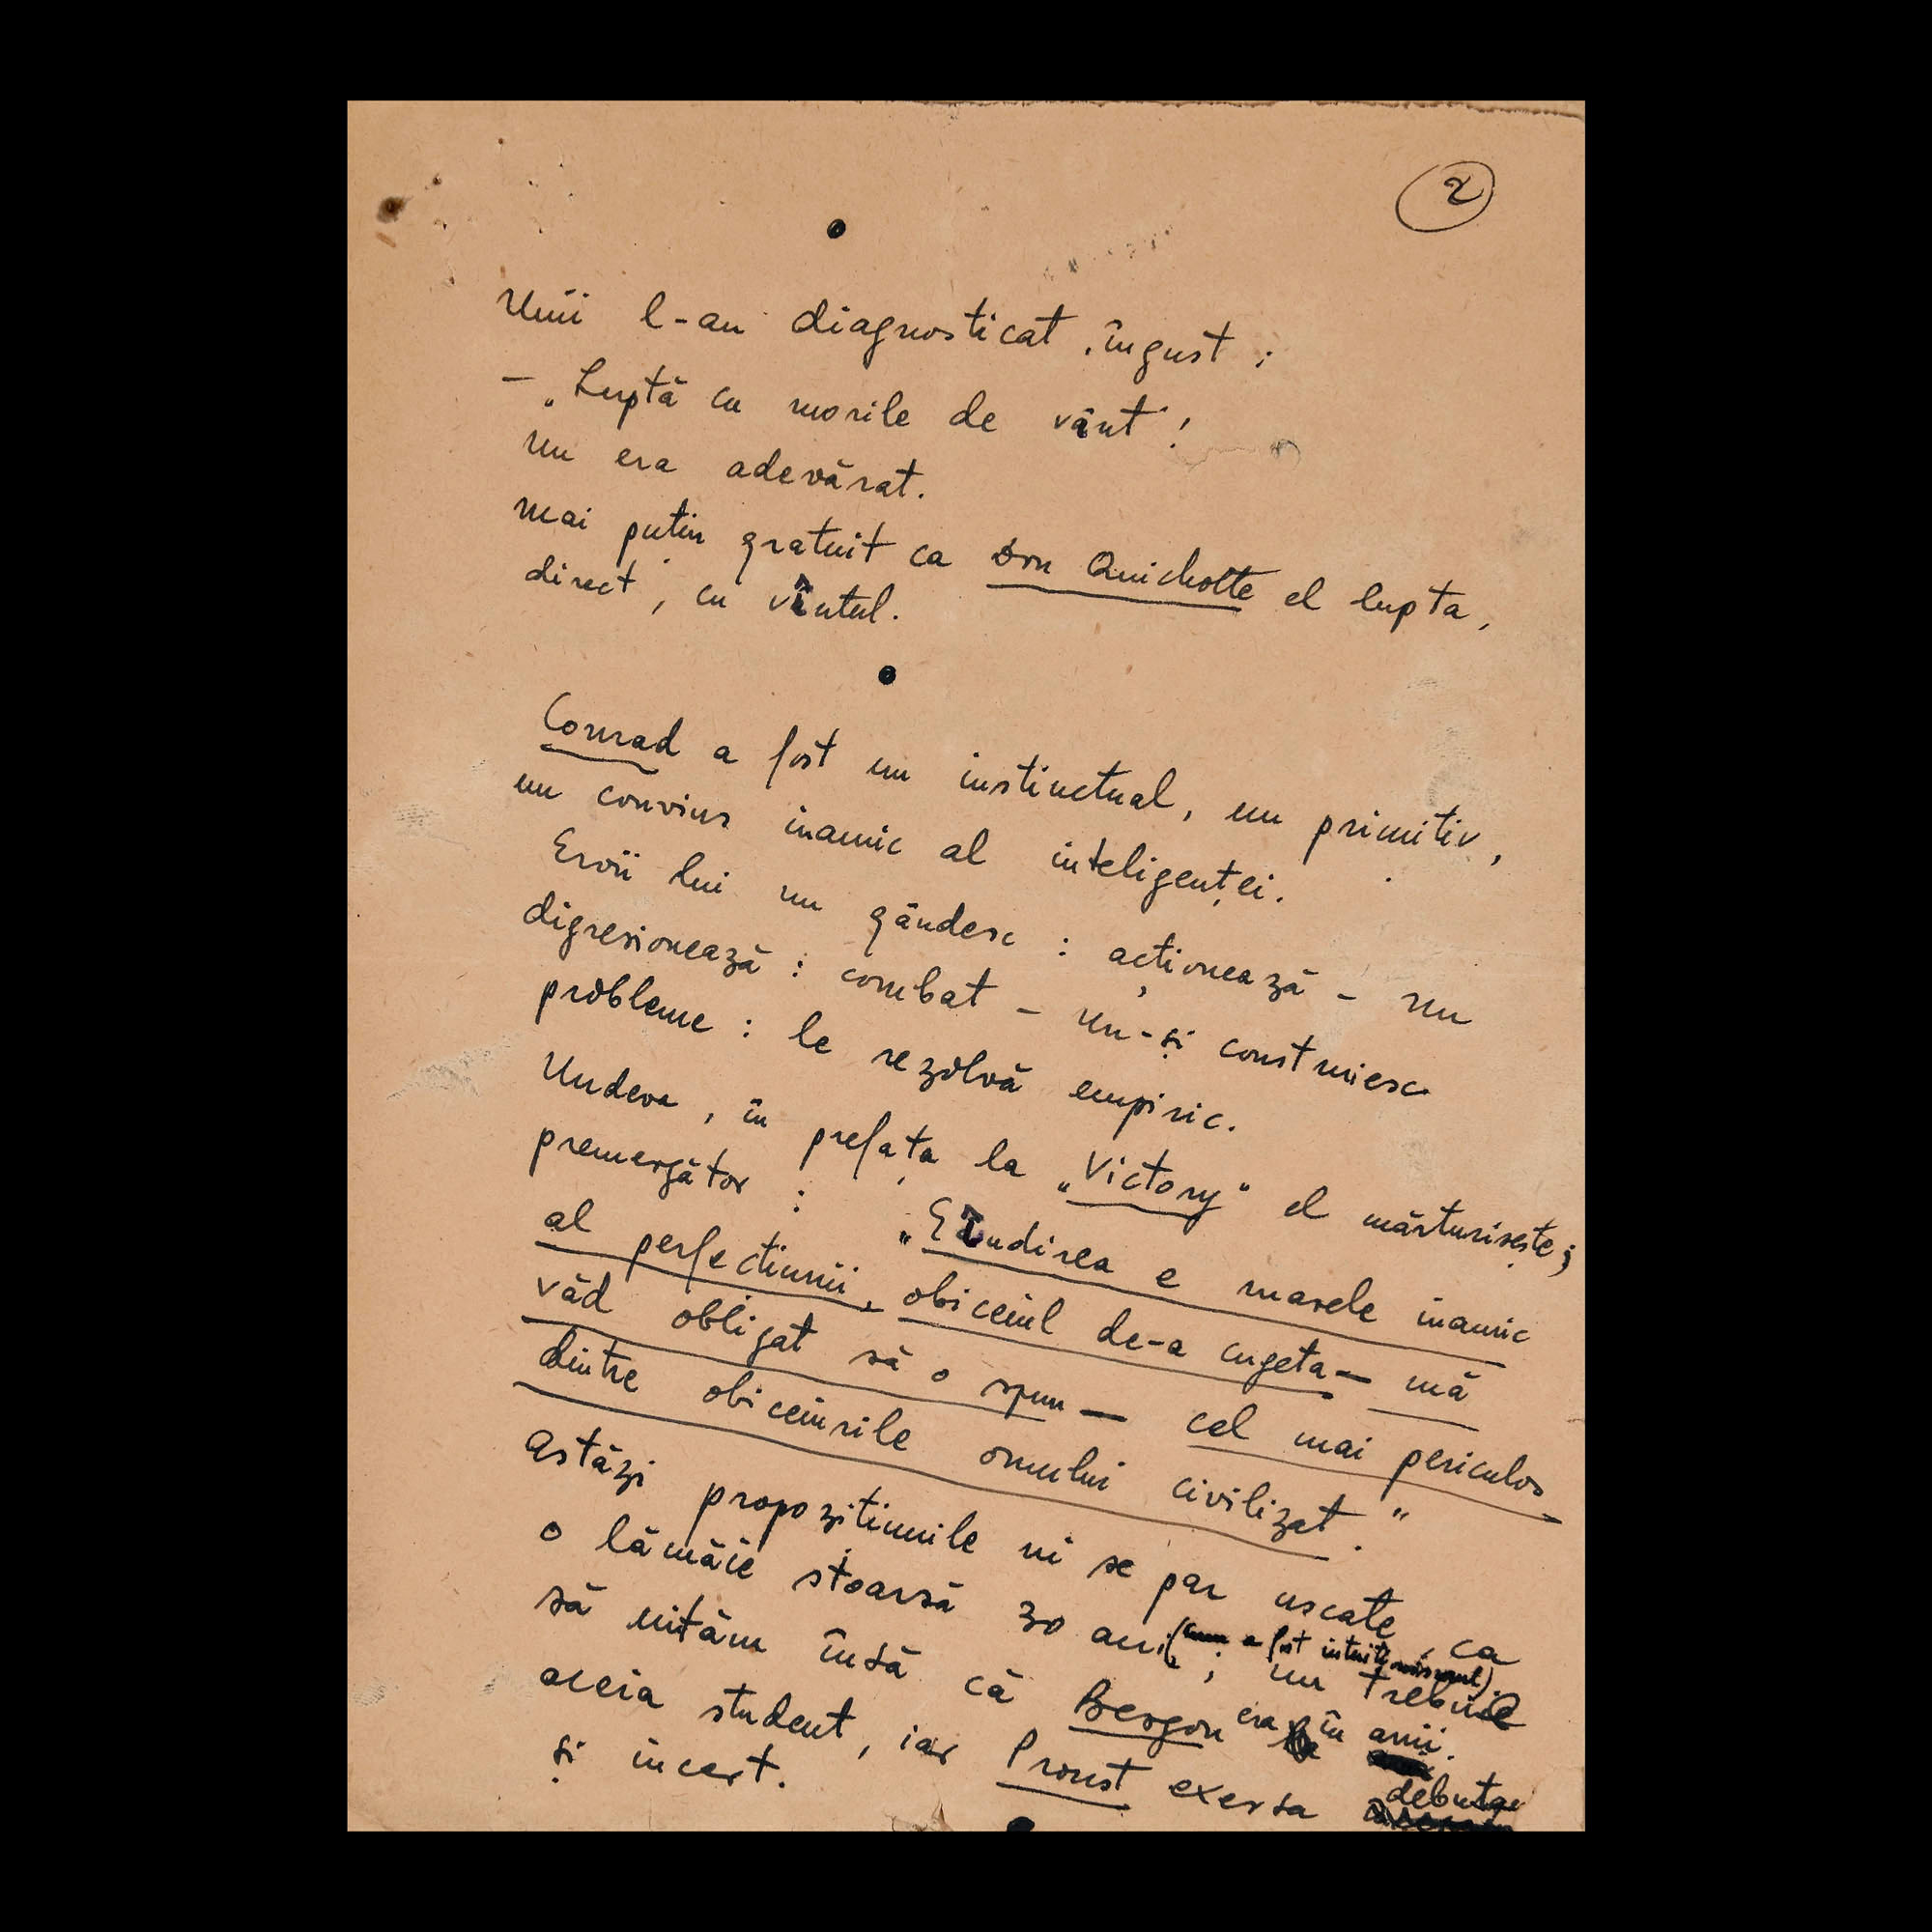 2
Unii l-au diagnosticat, îngust :
— „Luptă cu morile de vânt"!
Nu era adevărat.
Mai puțin gratuit ca Don Quichotte el lupta,
direct, cu vîntul.
Conrad a fost un instinctual, un primitiv,
un convins inamic al inteligenței.
Eroii lui nu gândesc : acționează – nu
digresionează : combat – nu-și construiesc
probleme : le rezolvă empiric.
Undeva, în prefața la „Victory" el mărturisește,
premergător : „Gîndirea e marele inamic
al perfectiunii, obiceiul de-a cugeta — mă
văd obligat să o spun — cel mai periculos
dintre obiceiurile omului civilizat."
Astăzi propozitiunile ni se par uscate, ca
o lămâie stoarsă 30 ani (a fost intuit); nu trebuie
să uităm însă că Bergson era în anii
aceia student, iar Proust exersa debuta
și incert.